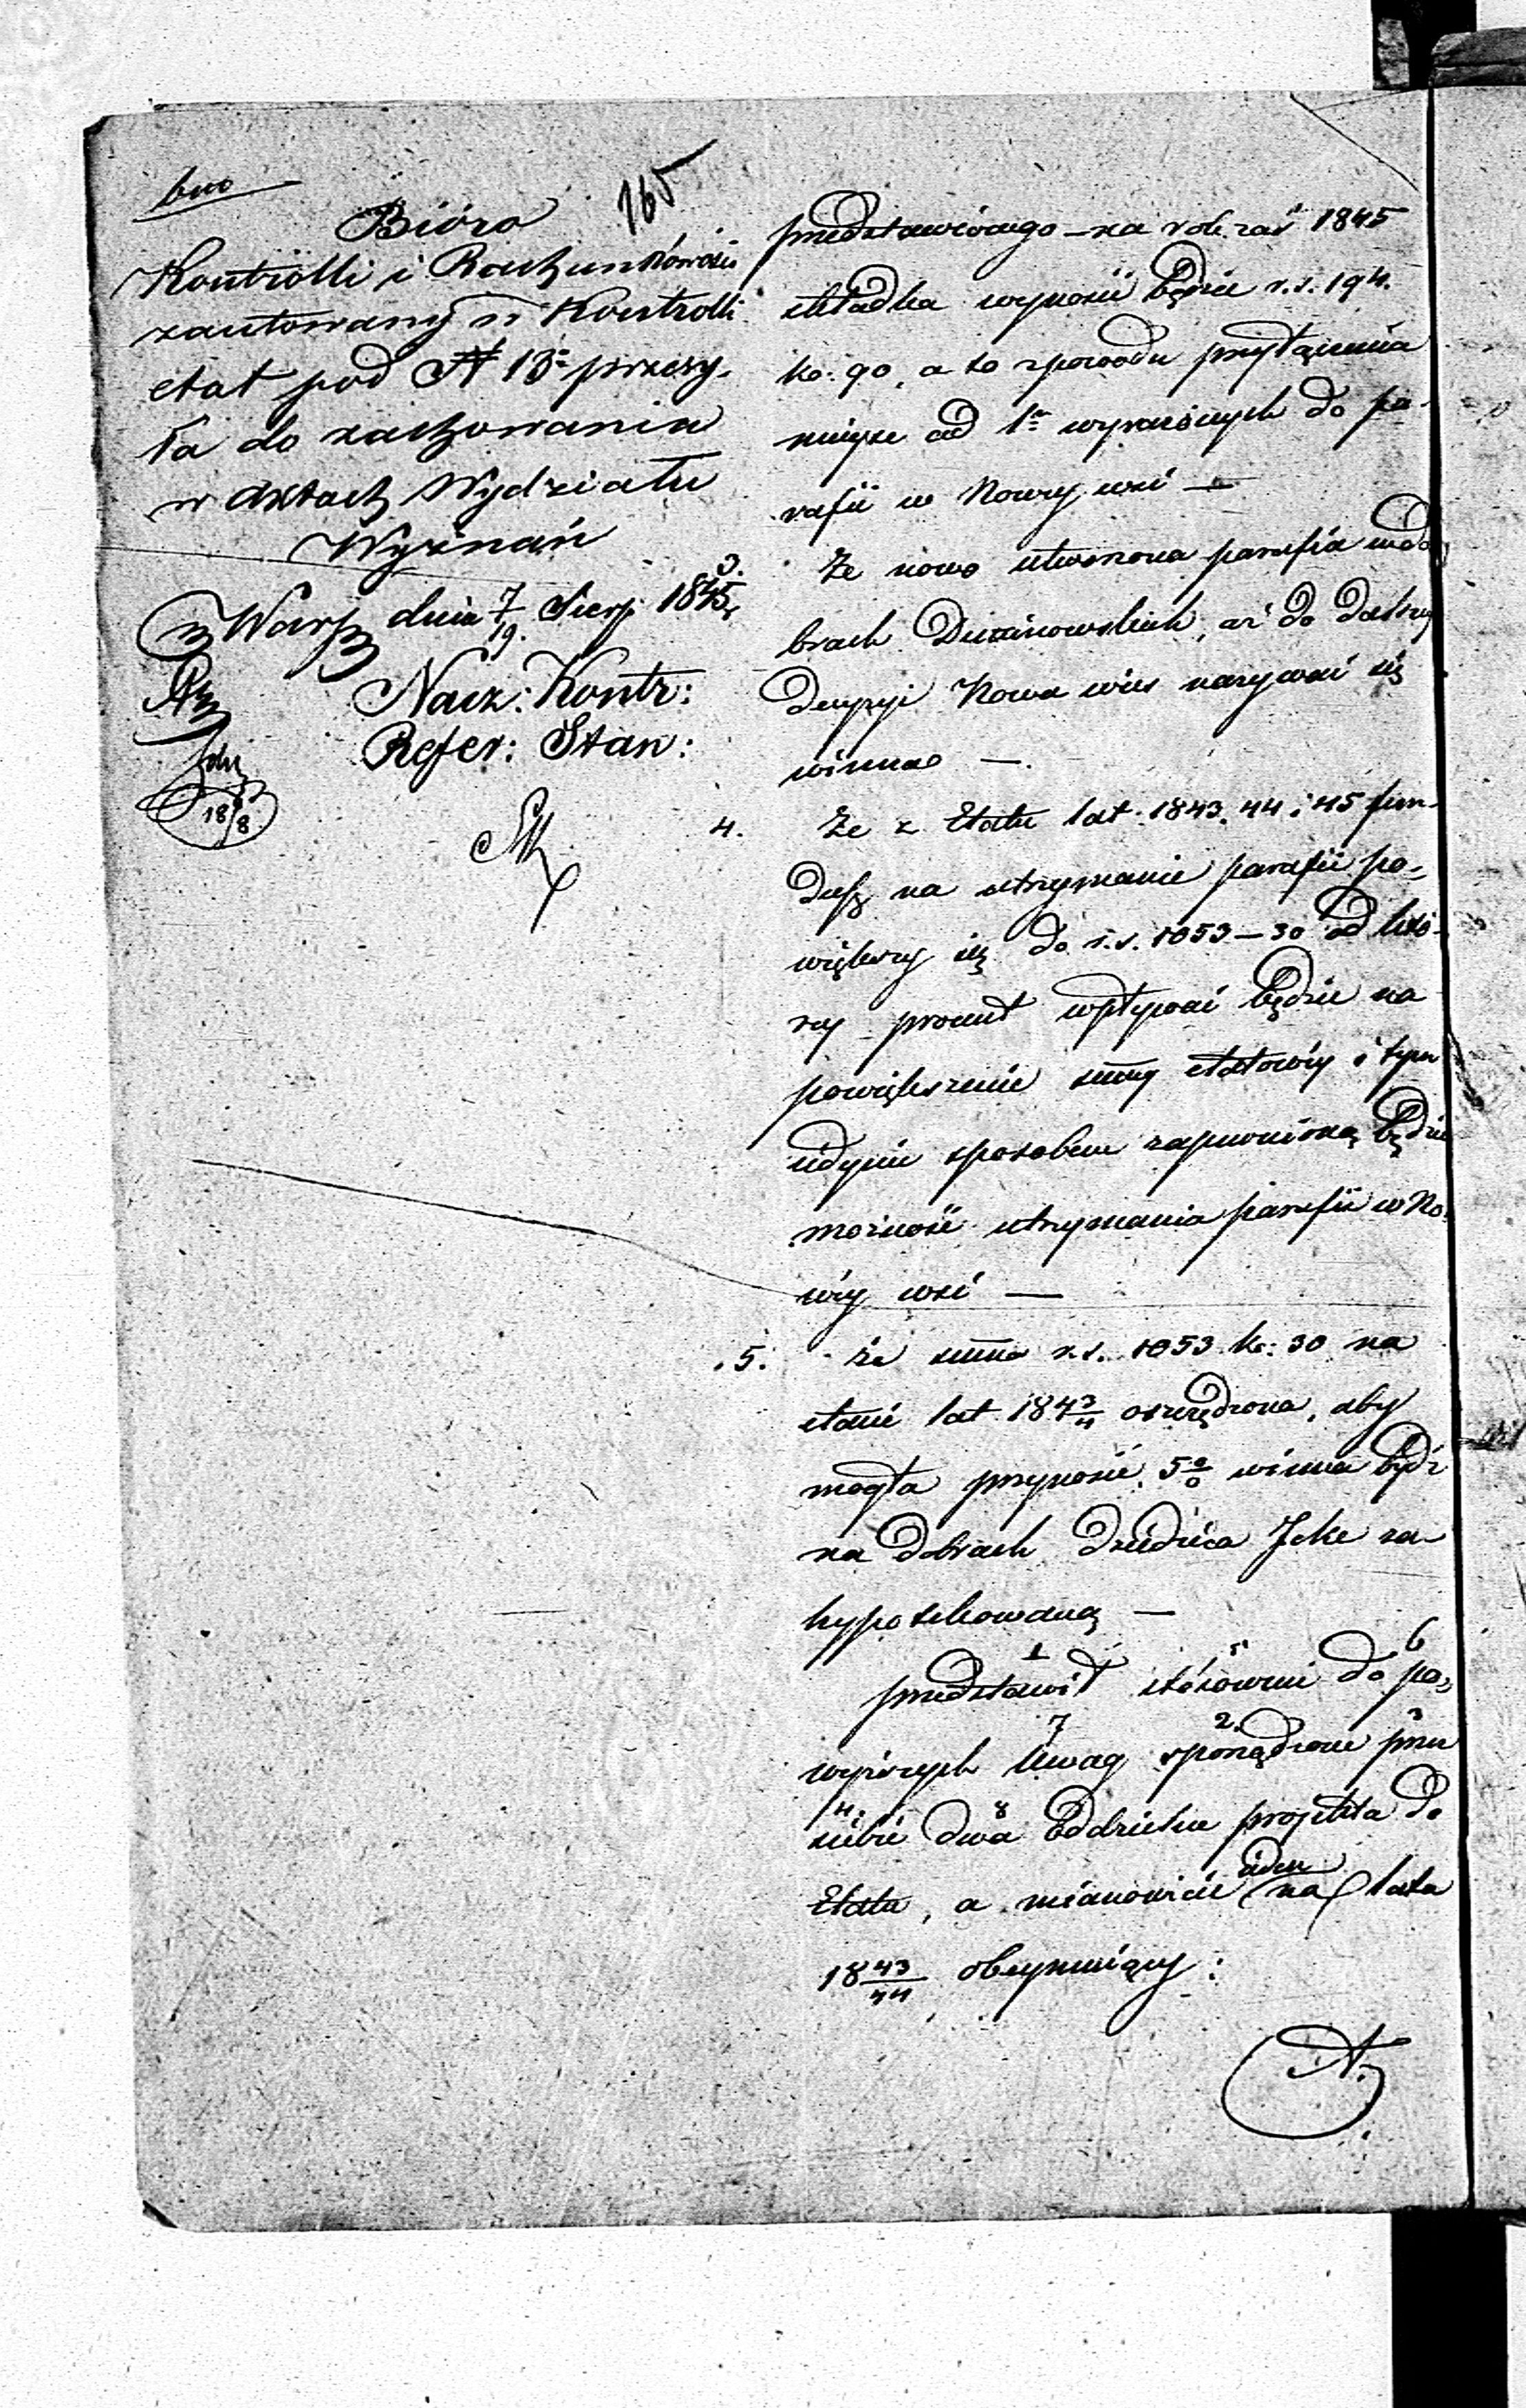 165
Bióro
Kontrolli i Rachunkowości
zanotowany w Kontrolli
etat pod N 13 przesy-
ła do zachowania
w aktach Wydziału
Wyznań
w Warsz dnia 7/19 Sierp 1845
Nacz: Kontr:
Refer: Stan:
18/8
przedstawionego – na rok zaś 1845
składka wynosić będzie r.s. 194.
ko: 90, a to z powodu przyłączenia
mniejsze od 1 wyrażonych do pa-
rafii w Nowej wsi —
3. Że nowo utworzona parafia w do
brach Duninowskich, aż do dalszej
decyzji Nowa wies nazywać się
winna —.
4. Że z Etatu lat 1843, 44 i 45 fun-
dusz na utrzymanie parafii po-
większy się do r.s. 1053–30 od któ-
rej procent wpływać będzie na
powiększenie summy etatowej i tym
jedynie sposobem zapewnioną będzie
możność utrzymania parafii w No-
wéj wsi —
5. Że summa r.s. 1053 ko: 30 na
etacie lat 1843/4 oszczędzona, aby
mogła przynosić 5% winna być
na dobrach dziedzica zа-
hypotekowaną —
przedstawił 1 stósownie 5 do po- 6
wyższych Uwag 7 sporządzone 2. przez 3
siebie 4. dwa 8 oddzielne projekta do
Etatu, a mianowicie jeden na lata
1843/44 obejmujący: